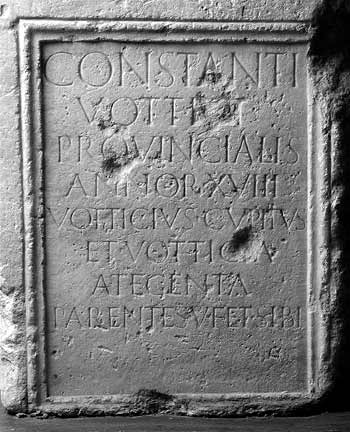 CONSTANTI
VOTTI
PROVINCIALIS
ANNOR XVIII
VOTTICIVS CVPITVS
ET VOTTICIA
ATEGENTA
PARENTES V F ET SIBI